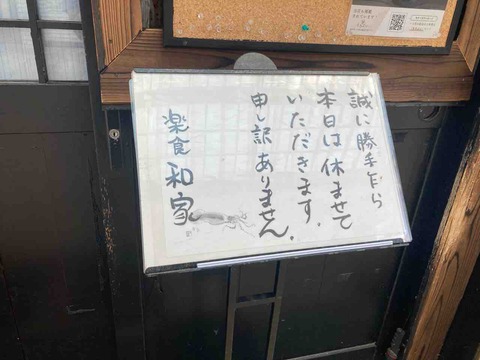 誠に勝手乍ら
本日は休ませて
いただきます.
申し訳ありません.
楽食和家